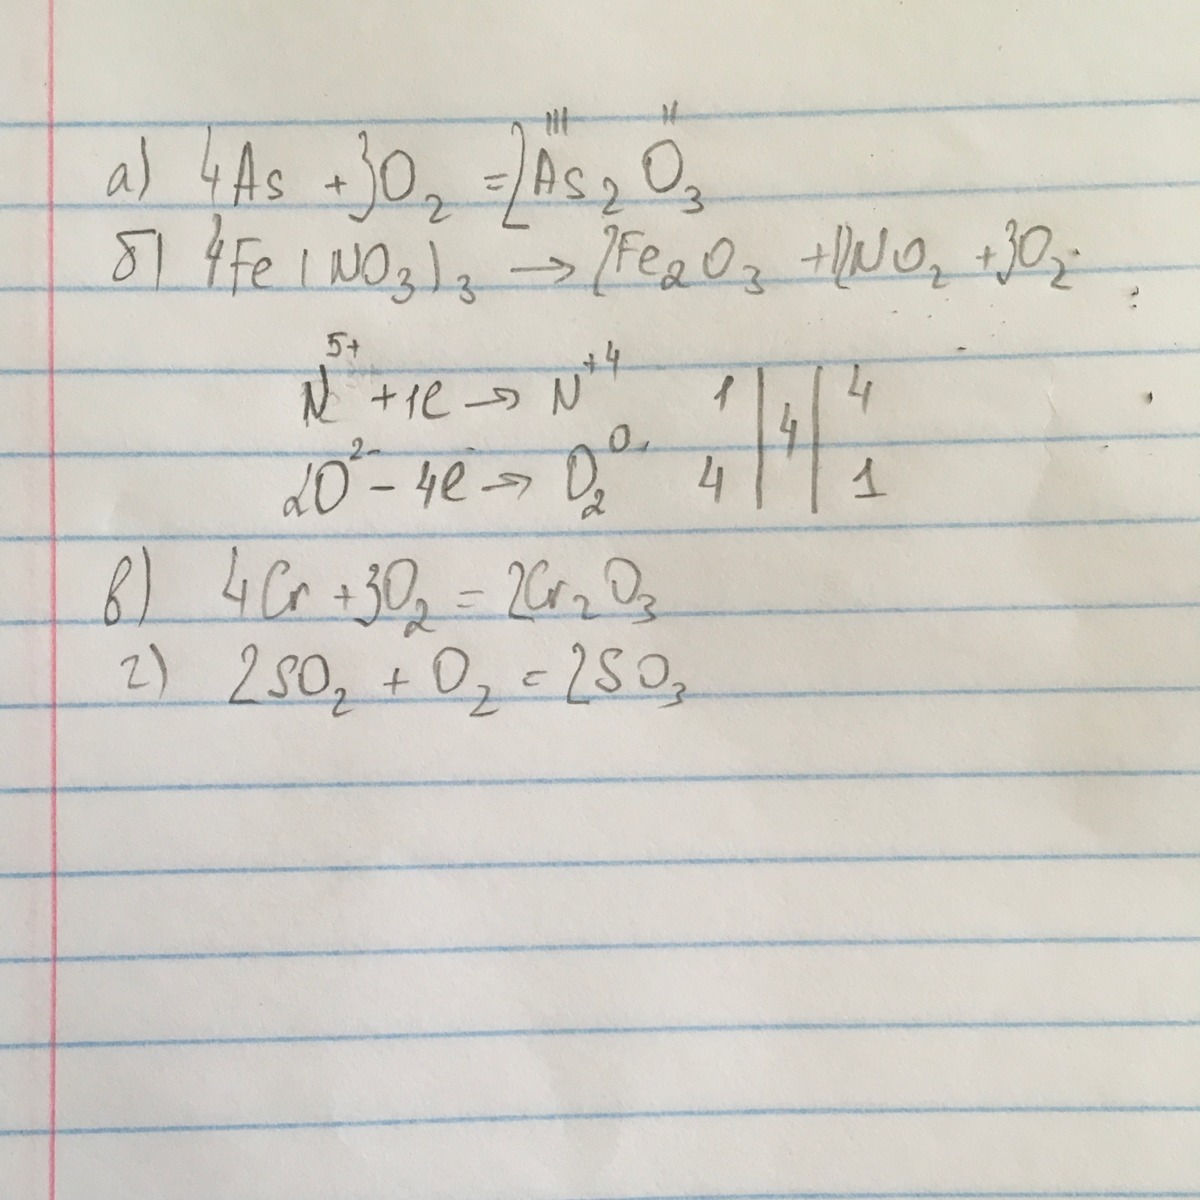 а) 4As + 3O₂ = 2As₂ᴵᴵᴵO₃ᴵᴵ
б) 4Fe(NO₃)₃ → 2Fe₂O₃ + 12NO₂ + 3O₂
N⁵⁺ + 1e → N⁺⁴ 1 | 4 | 4
2O²⁻ - 4e → O₂⁰ 4 | | 1
в) 4Cr + 3O₂ = 2Cr₂O₃
г) 2SO₂ + O₂ = 2SO₃